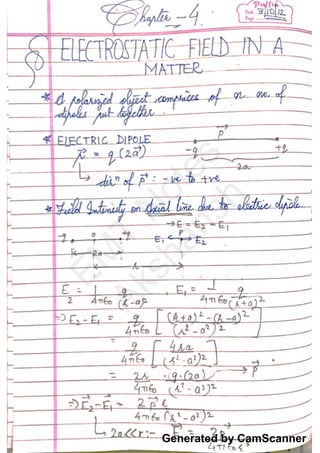 Chapter - 4.
Date 31/10/12
Page
ELECTROSTATIC FIELD IN A
MATTER
* A polarized object comprises of n no. of
dipoles put together.
* ELECTRIC DIPOLE
p⃗ = q (2a⃗)
p⃗
-q +q
2a
↳ dirⁿ of p⃗ : - ve to +ve
* Field Intensity on Axial line due to electric dipole
→ E = E₂ - E₁
-q 0 +q E₁ ← P → E₂
2a
r
E₂ = 1/4π∈₀ q/(r-a)² , E₁ = 1/4π∈₀ q/(r+a)²
⇒ E₂-E₁ = q/4π∈₀ [ (r+a)² - (r-a)² / (r²-a²)² ]
= q/4π∈₀ [ 4ra / (r²-a²)² ]
= 2r/4π∈₀ q.(2a)/(r²-a²)² → p⃗
⇒ E⃗₂-E⃗₁ = 2p⃗r / 4π∈₀(r²-a²)²
↳ 2a<<r :- E⃗ = 2p⃗ / 4π∈₀r³
EMT Notes
Generated by CamScanner